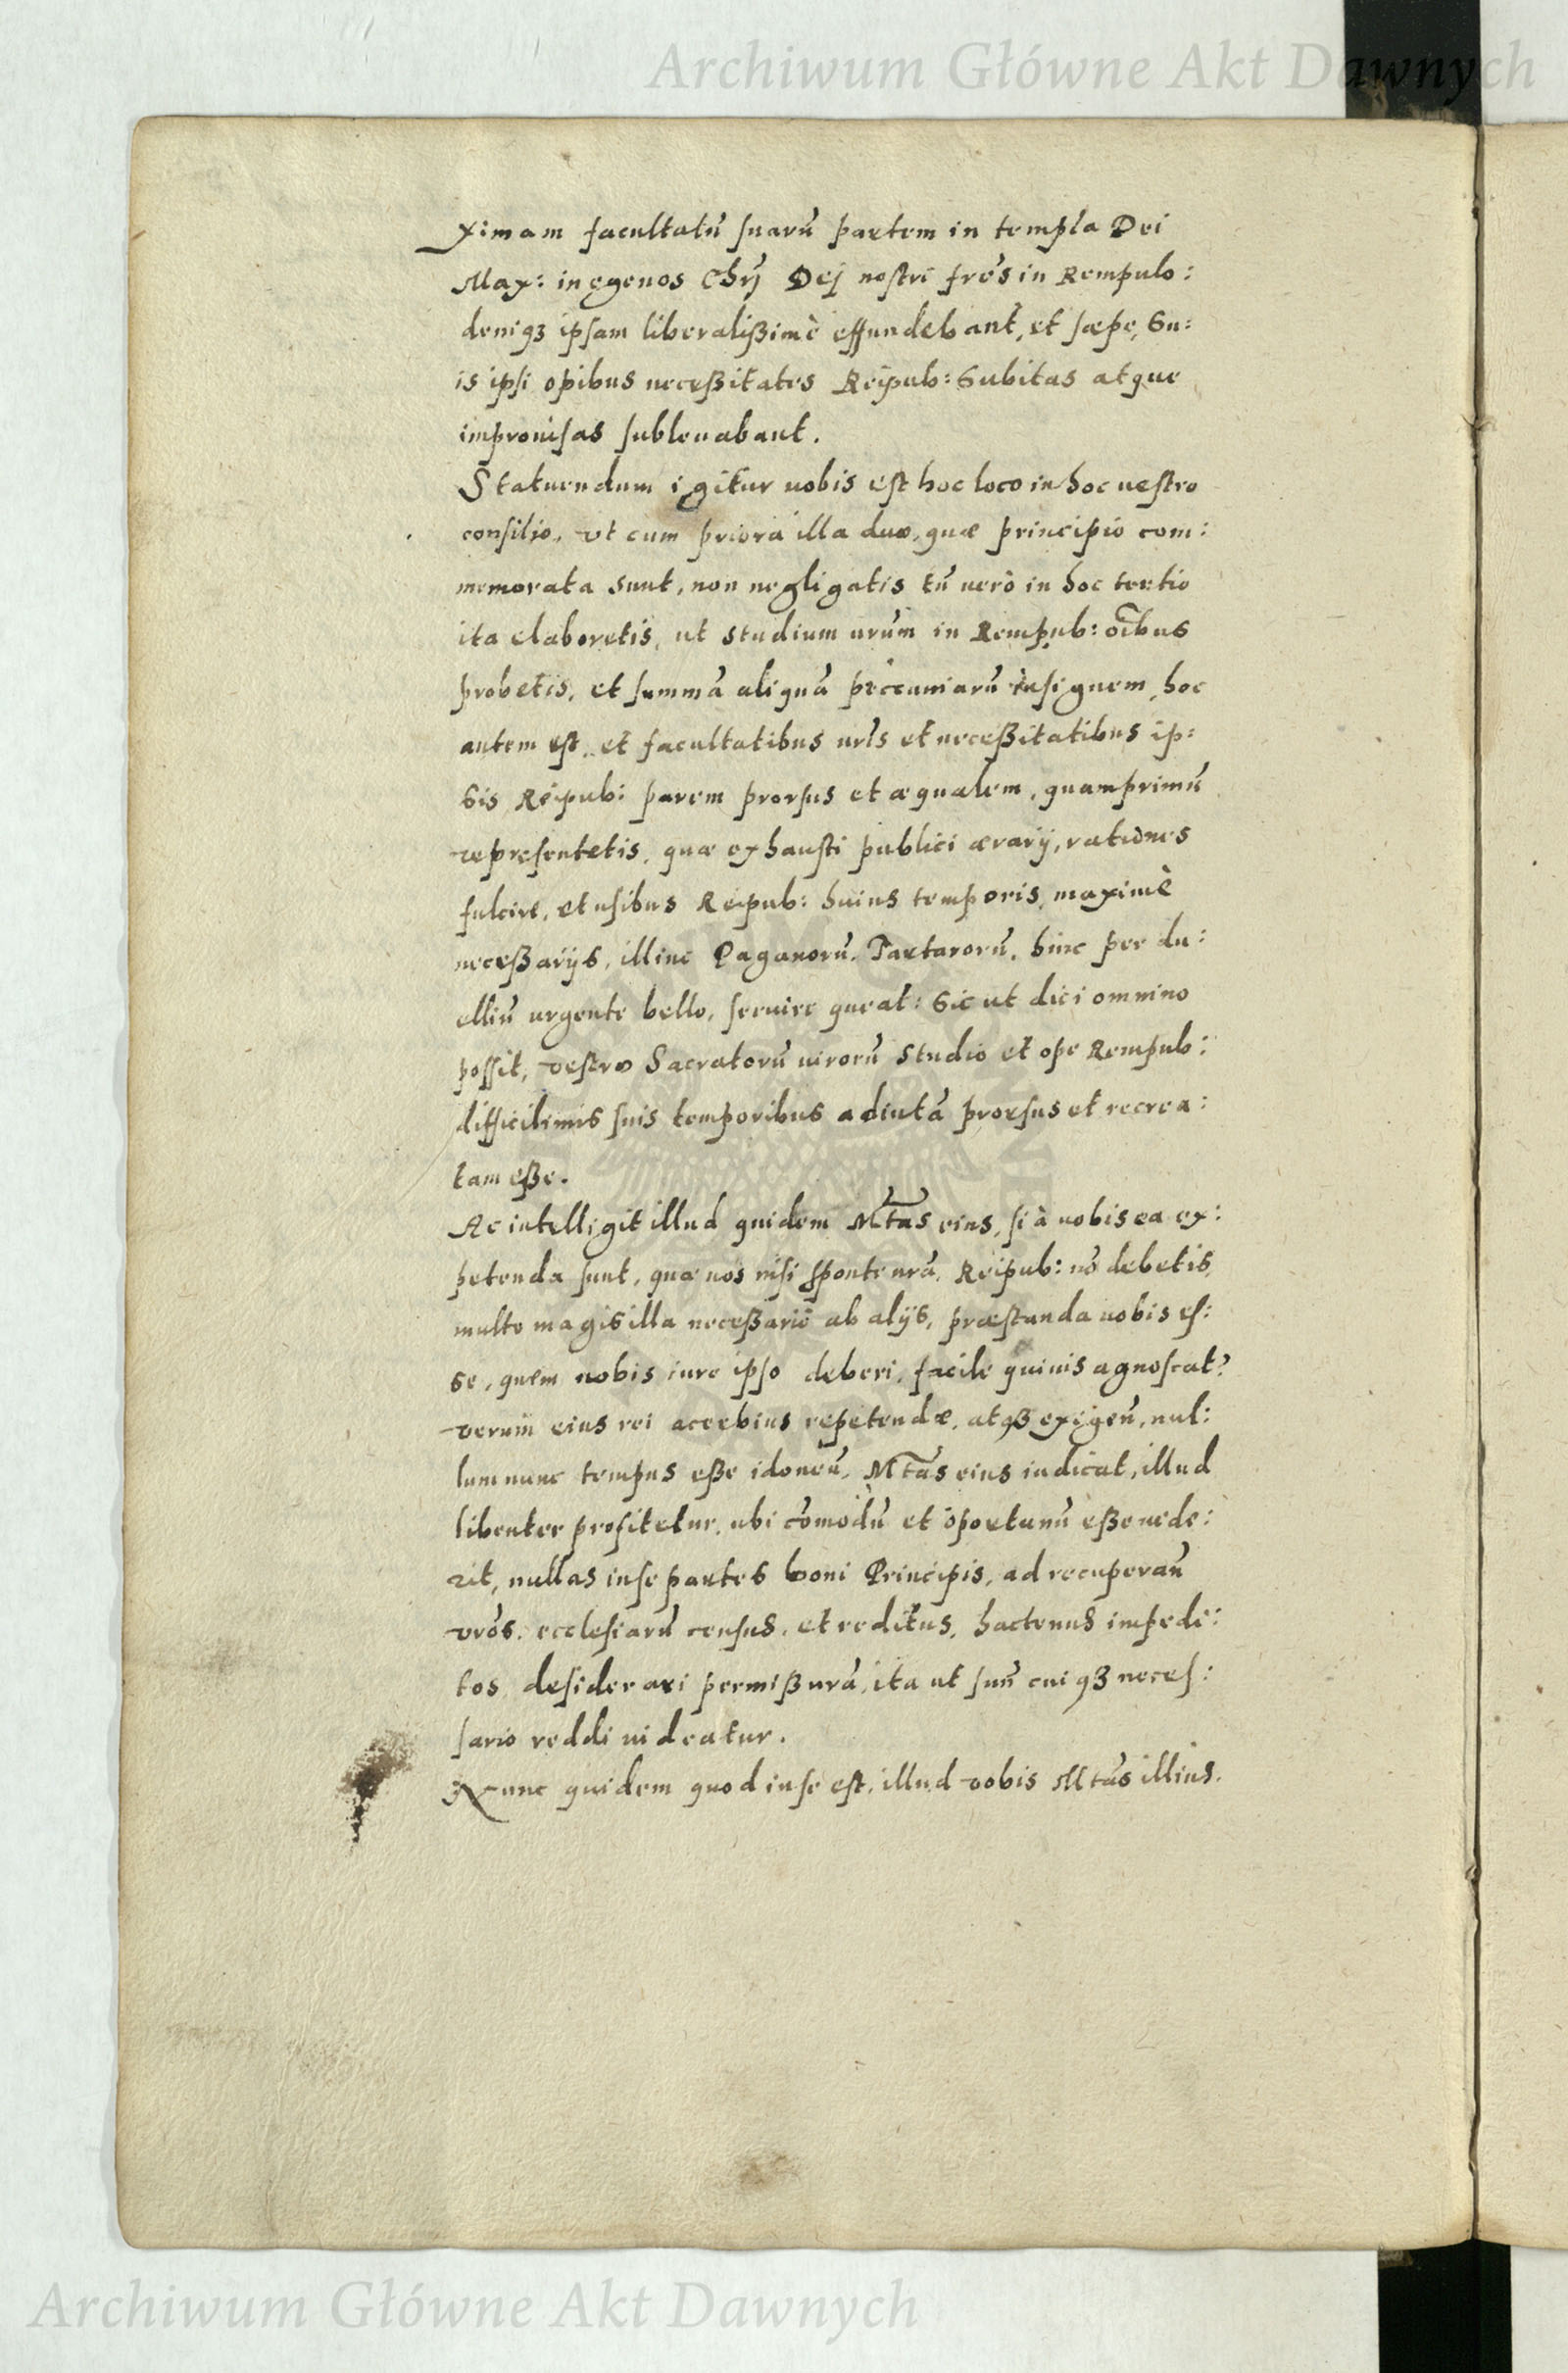 Archiwum Główne Akt Dawnych
ximam facultatũ suarũ partem in templa Dei
Max: in egenos Chrj Dej nostri frẽs in Rempulo:
deniqȝ ipsam liberalißimè effundebant, et sæpe, su:
is ipsi opibus neceßitates Reipub: subitas atque
improuisas subleuabant.
Statuendum igitur uobis est hoc loco in hoc uestro
consilio, vt cum priora illa duo, quæ principio com:
memorata sunt, non negligatis tũ uerò in hoc tertio
ita elaboretis, ut studium urũm in Rempub: oĩbus
probetis, et summã aliquã peccuniarũ insignem, hoc
autem est, et facultatibus urĩs et neceßitatibus ip:
sis Reipub: parem prorsus et æqualem, quamprimũ
representetis, quæ exhausti publici ærarij, rationes
fulcire, et usibus Reipub: huius temporis, maximè
neceßarijs, illinc Paganorũ Tartarorũ, hinc per du:
elliũ urgente bello, seruire queat: Sic ut dici omnino
possit, vestro Sacratorũ uirorũ studio et ope Rempub:
difficilimis suis temporibus adiutã prorsus et recrea:
tam eße.
Ac intelligit illud quidem Mtãs eius, si à uobis ea ex:
petenda sunt, quæ uos nisi sponte urã, Reipub: nõ debetis,
multo magis illa neceßariò ab alijs, præstanda uobis es:
se, quem uobis iure ipso deberi, facile quiuis agnoscat?
verum eius rei acerbius repetendæ, atqȝ exigeñ, nul:
lum nunc tempus eße idoneũ, Mtãs eius iudicat, illud
libenter profitetur, ubi cõmodũ et oportunũ eße uide:
rit, nullas in se partes boni Principis, ad recuperañ
vrõs, ecclesiarũ census, et reditus, hactenus impedi:
tos desiderari permißurã, ita ut suũ cuiqȝ neces:
sario reddi uideatur.
Nunc quidem quod in se est, illud vobis Mtãs illius.
Archiwum Główne Akt Dawnych